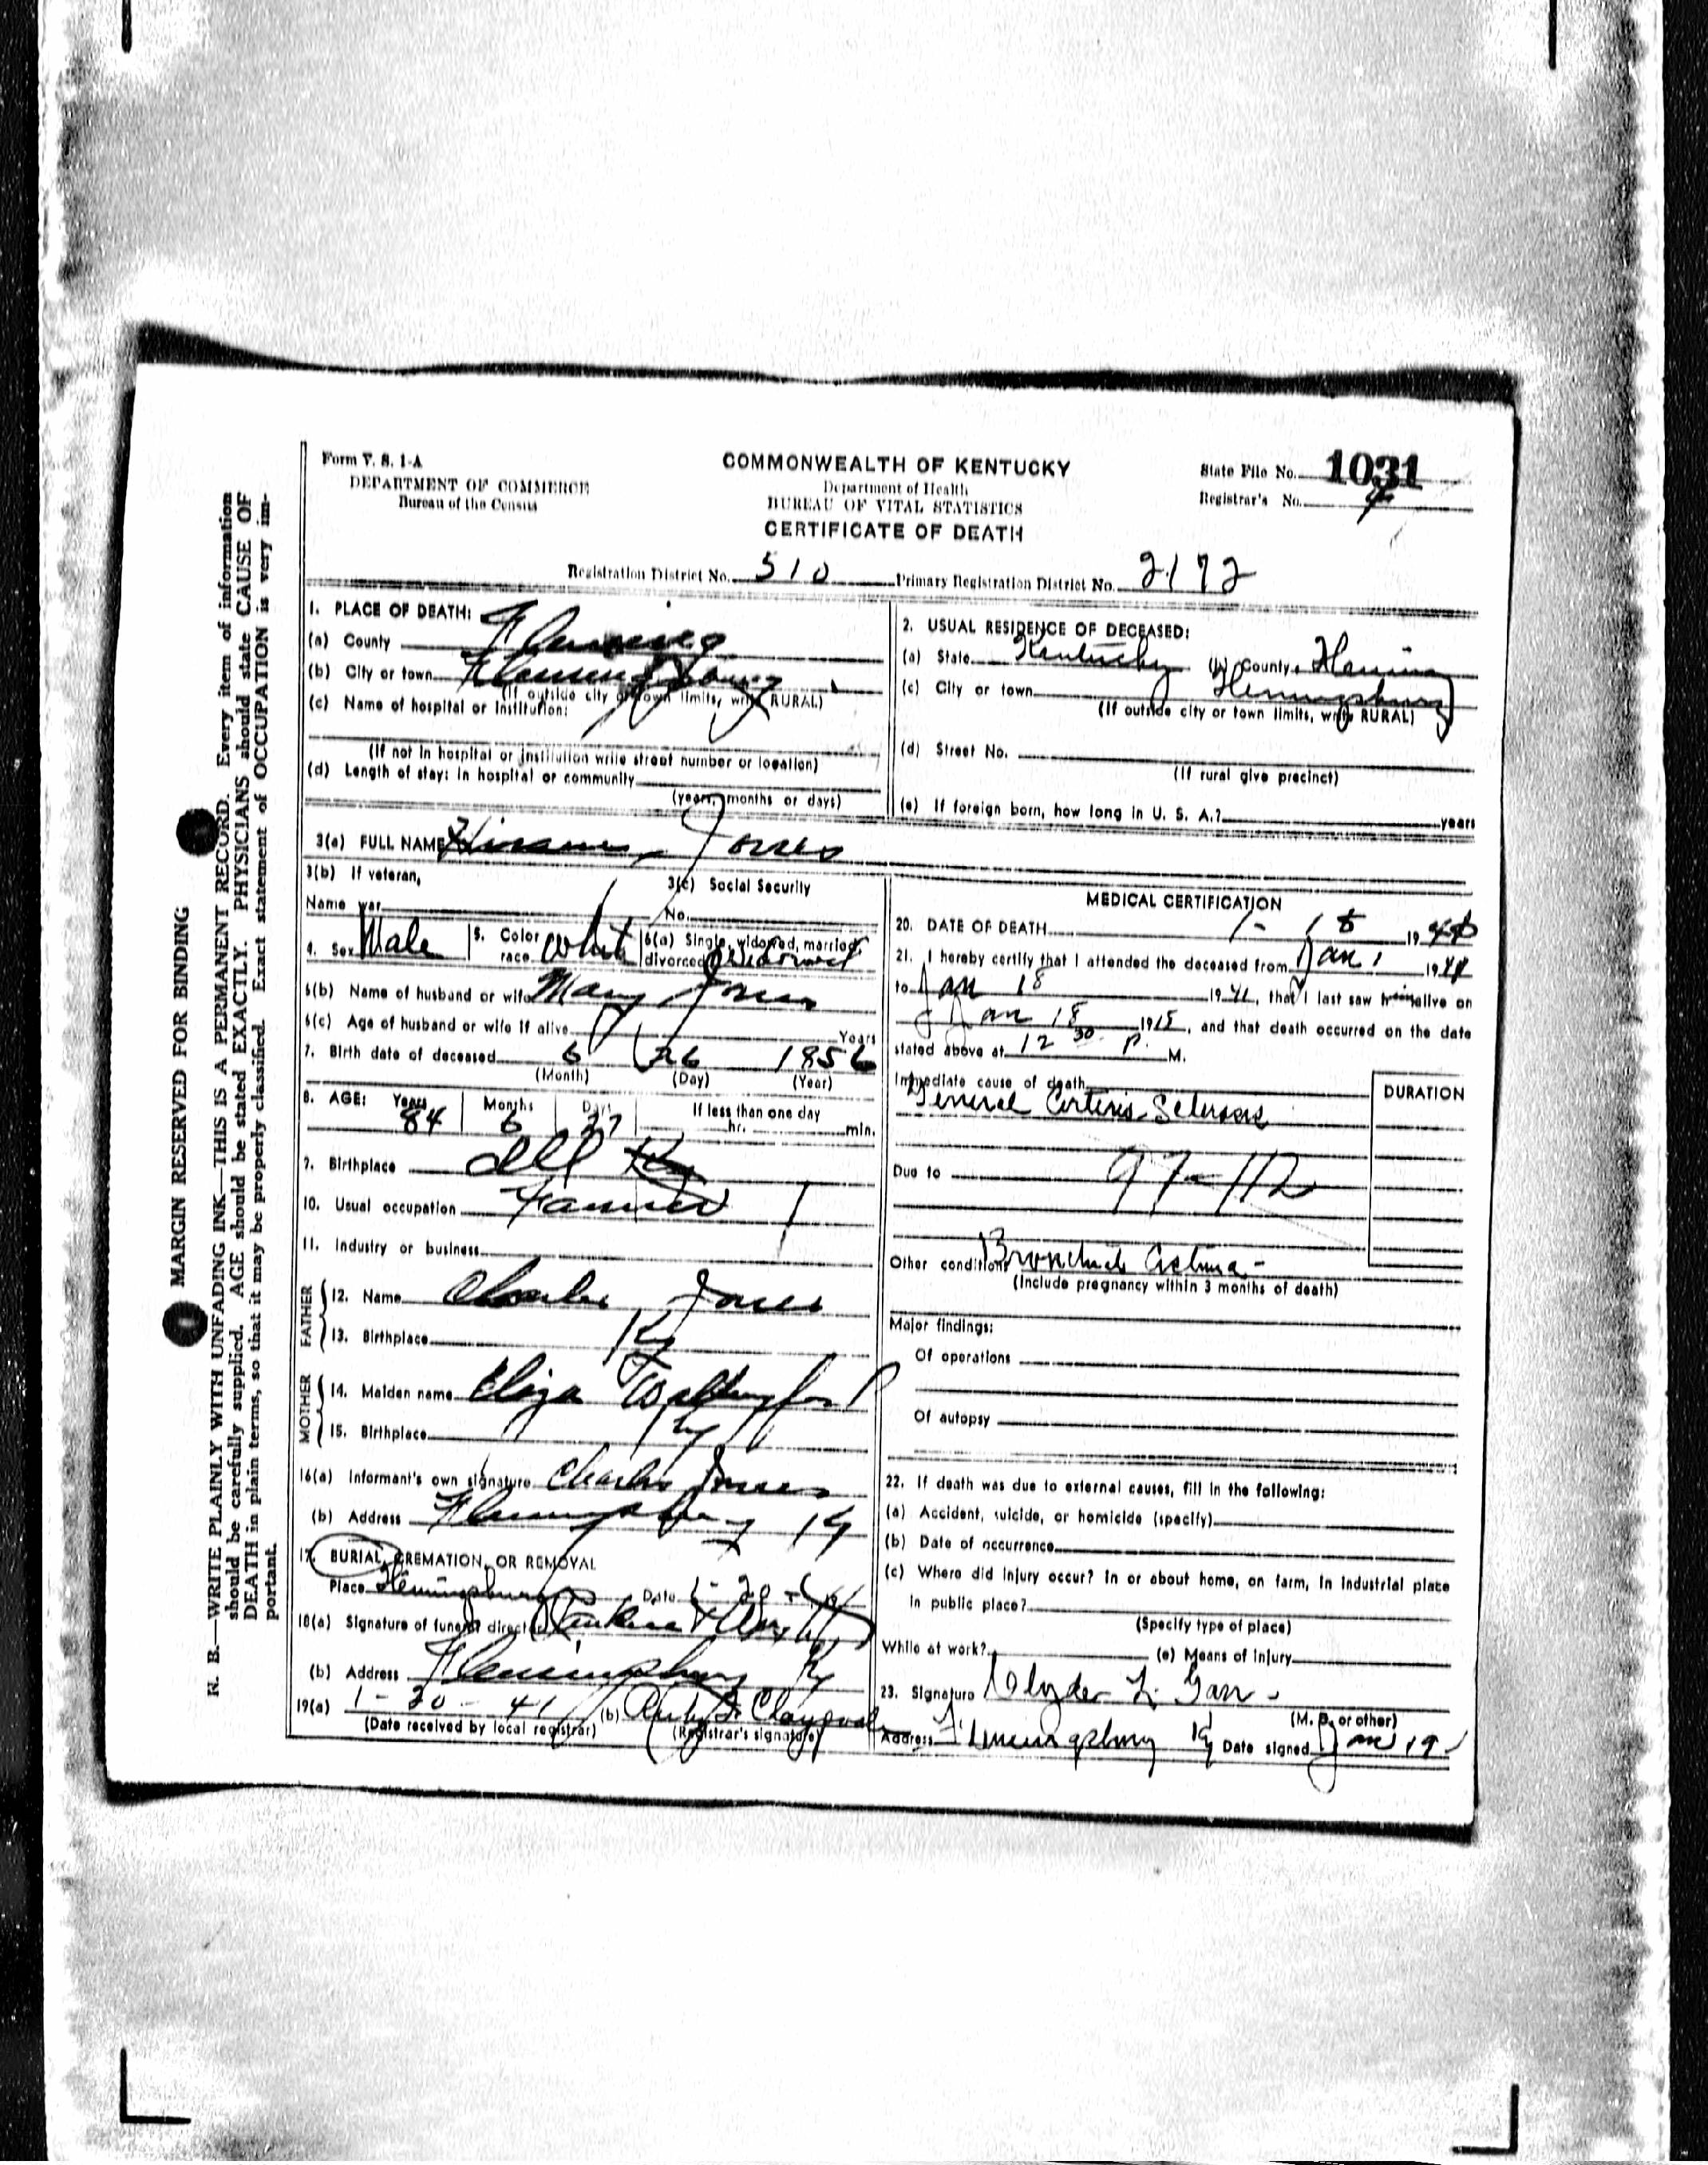 Form V. S. 1-A
DEPARTMENT OF COMMERCE
Bureau of the Census
COMMONWEALTH OF KENTUCKY
Department of Health
BUREAU OF VITAL STATISTICS
CERTIFICATE OF DEATH
State File No. 1031
Registrar's No. 4
Registration District No. 510 Primary Registration District No. 2172
1. PLACE OF DEATH:
(a) County Fleming
(b) City or town Flemingsburg
(If outside city or town limits, write RURAL)
(c) Name of hospital or institution:
(If not in hospital or institution write street number or location)
(d) Length of stay: In hospital or community
(years, months or days)
2. USUAL RESIDENCE OF DECEASED:
(a) State Kentucky (b) County Fleming
(c) City or town Flemingsburg
(If outside city or town limits, write RURAL)
(d) Street No.
(If rural give precinct)
(e) If foreign born, how long in U. S. A.? years
3(a) FULL NAME Jones
3(b) If veteran,
Name war
3(c) Social Security
No.
4. Sex Male
5. Color race White
6(a) Single, widowed, married, divorced Widowed
6(b) Name of husband or wife Mary Jones
6(c) Age of husband or wife if alive Years
7. Birth date of deceased 6 26 1856
(Month) (Day) (Year)
8. AGE: Years Months Days If less than one day
84 6 27 hr. min.
9. Birthplace Ill
10. Usual occupation Farmer
11. Industry or business
FATHER
12. Name Charles Jones
13. Birthplace Ky
MOTHER
14. Maiden name Eliza Wallingford
15. Birthplace Ky
16(a) Informant's own signature Charles Jones
(b) Address Flemingsburg Ky
17. BURIAL, CREMATION, OR REMOVAL
Place Flemingsburg Date 1-20-
18(a) Signature of funeral director
(b) Address Flemingsburg Ky
19(a) 1-20-41 (b)
(Date received by local registrar) (Registrar's signature)
MEDICAL CERTIFICATION
20. DATE OF DEATH 1- 18 19
21. I hereby certify that I attended the deceased from Jan 1 19
to Jan 18 1941, that I last saw him alive on
Jan 18 19, and that death occurred on the date
stated above at 12 30 P. M.
Immediate cause of death
General
DURATION
Due to 97-112
Other conditions Asthma-
(Include pregnancy within 3 months of death)
Major findings:
Of operations
Of autopsy
22. If death was due to external causes, fill in the following:
(a) Accident, suicide, or homicide (specify)
(b) Date of occurrence
(c) Where did Injury occur? In or about home, on farm, in industrial place
in public place?
(Specify type of place)
While at work? (e) Means of Injury
23. Signature
(M. D. or other)
Address Flemingsburg Ky Date signed Jan 19
MARGIN RESERVED FOR BINDING
R. B.—WRITE PLAINLY WITH UNFADING INK—THIS IS A PERMANENT RECORD. Every item of information
should be carefully supplied. AGE should be stated EXACTLY. PHYSICIANS should state CAUSE OF
DEATH in plain terms, so that it may be properly classified. Exact statement of OCCUPATION is very im-
portant.